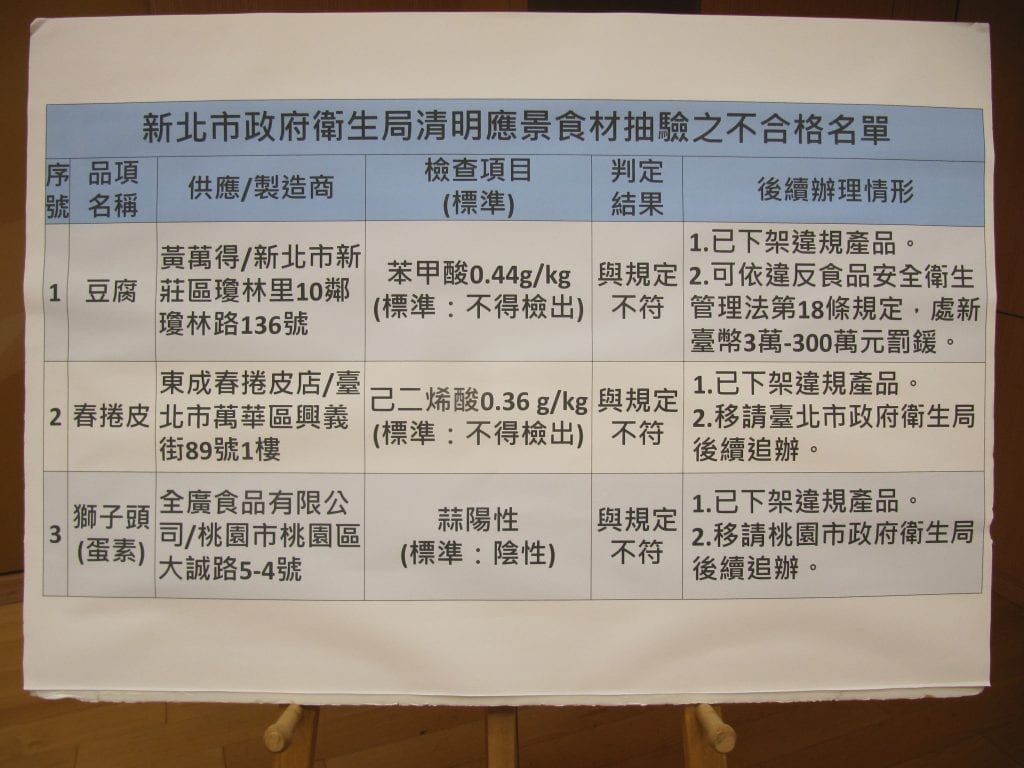 新北市政府衛生局清明應景食材抽驗之不合格名單
序號 品項名稱 供應/製造商 檢查項目(標準) 判定結果 後續辦理情形
1
豆腐
黃萬得/新北市新
莊區瓊林里10鄰
瓊林路136號
苯甲酸0.44g/kg
(標準：不得檢出)
與規定
不符
1.已下架違規產品。
2.可依違反食品安全衛生
管理法第18條規定，處新
臺幣3萬-300萬元罰鍰。
2
春捲皮
東成春捲皮店/臺
北市萬華區興義
街89號1樓
己二烯酸0.36 g/kg
(標準：不得檢出)
與規定
不符
1.已下架違規產品。
2.移請臺北市政府衛生局
後續追辦。
3
獅子頭
(蛋素)
全廣食品有限公
司/桃園市桃園區
大誠路5-4號
蒜陽性
(標準：陰性)
與規定
不符
1.已下架違規產品。
2.移請桃園市政府衛生局
後續追辦。